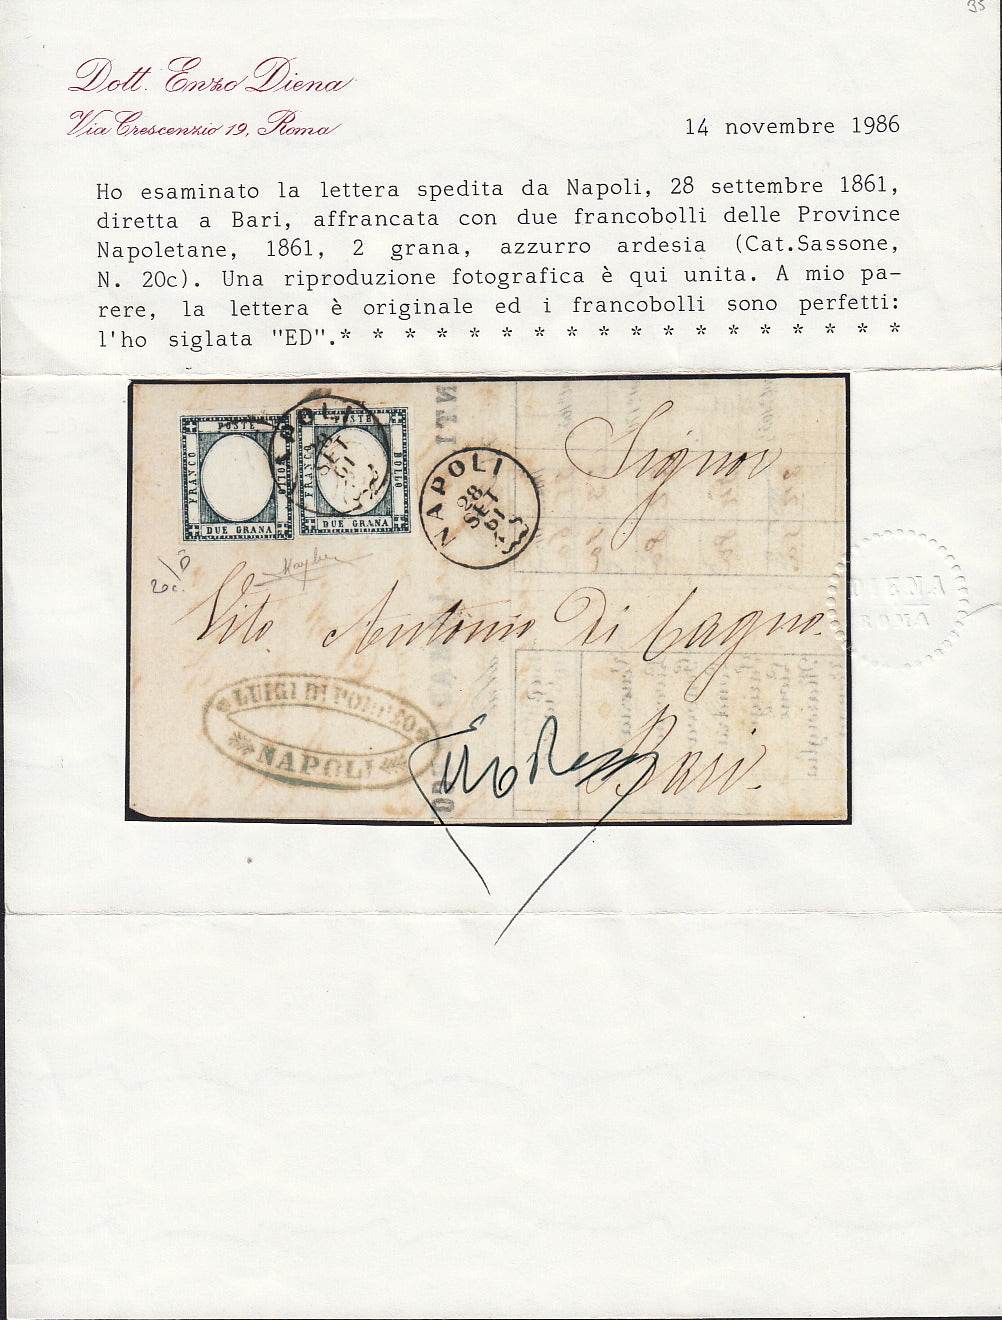 35
Dott. Enzo Diena
Via Crescenzio 19, Roma
14 novembre 1986
Ho esaminato la lettera spedita da Napoli, 28 settembre 1861,
diretta a Bari, affrancata con due francobolli delle Province
Napoletane, 1861, 2 grana, azzurro ardesia (Cat.Sassone,
N. 20c). Una riproduzione fotografica è qui unita. A mio pa-
rere, la lettera è originale ed i francobolli sono perfetti:
l'ho siglata "ED".* * * * * * * * * * * * * * * * * *
POSTE
FRANCO
BOLLO
DUE GRANA
POSTE
FRANCO
BOLLO
DUE GRANA
NAPOLI
28
SET
61
NAPOLI
28
SET
61
Signor
20c.
Vito Antonio Di Cagno
Bari
LUIGI DI POMPEO
NAPOLI
DIENA
ROMA